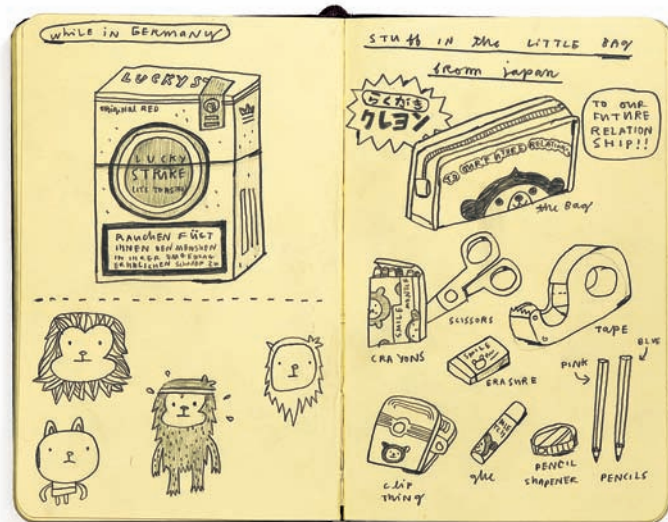 while in GERMANY
LUCKY S
ORIGINAL RED
LUCKY
STRIKE
IT'S TOASTED
RAUCHEN FÜGT
IHNEN DEN MENSCHEN
IN IHRER UMGEBUNG
ERHEBLICHEN SCHADEN ZU
STUFF IN the LITTLE BAG
from japan
らくがき
クレヨン
TO OUR FUTURE RELATIONS
TO OUR
FUTURE
RELATION
SHIP!!
the BAG
SMILE
MONKEY
CRAYONS
SCISSORS
TAPE
SMILE
ERASURE
PINK
BLUE
clip
thing
glue
PENCIL
SHAPENER
PENCILS